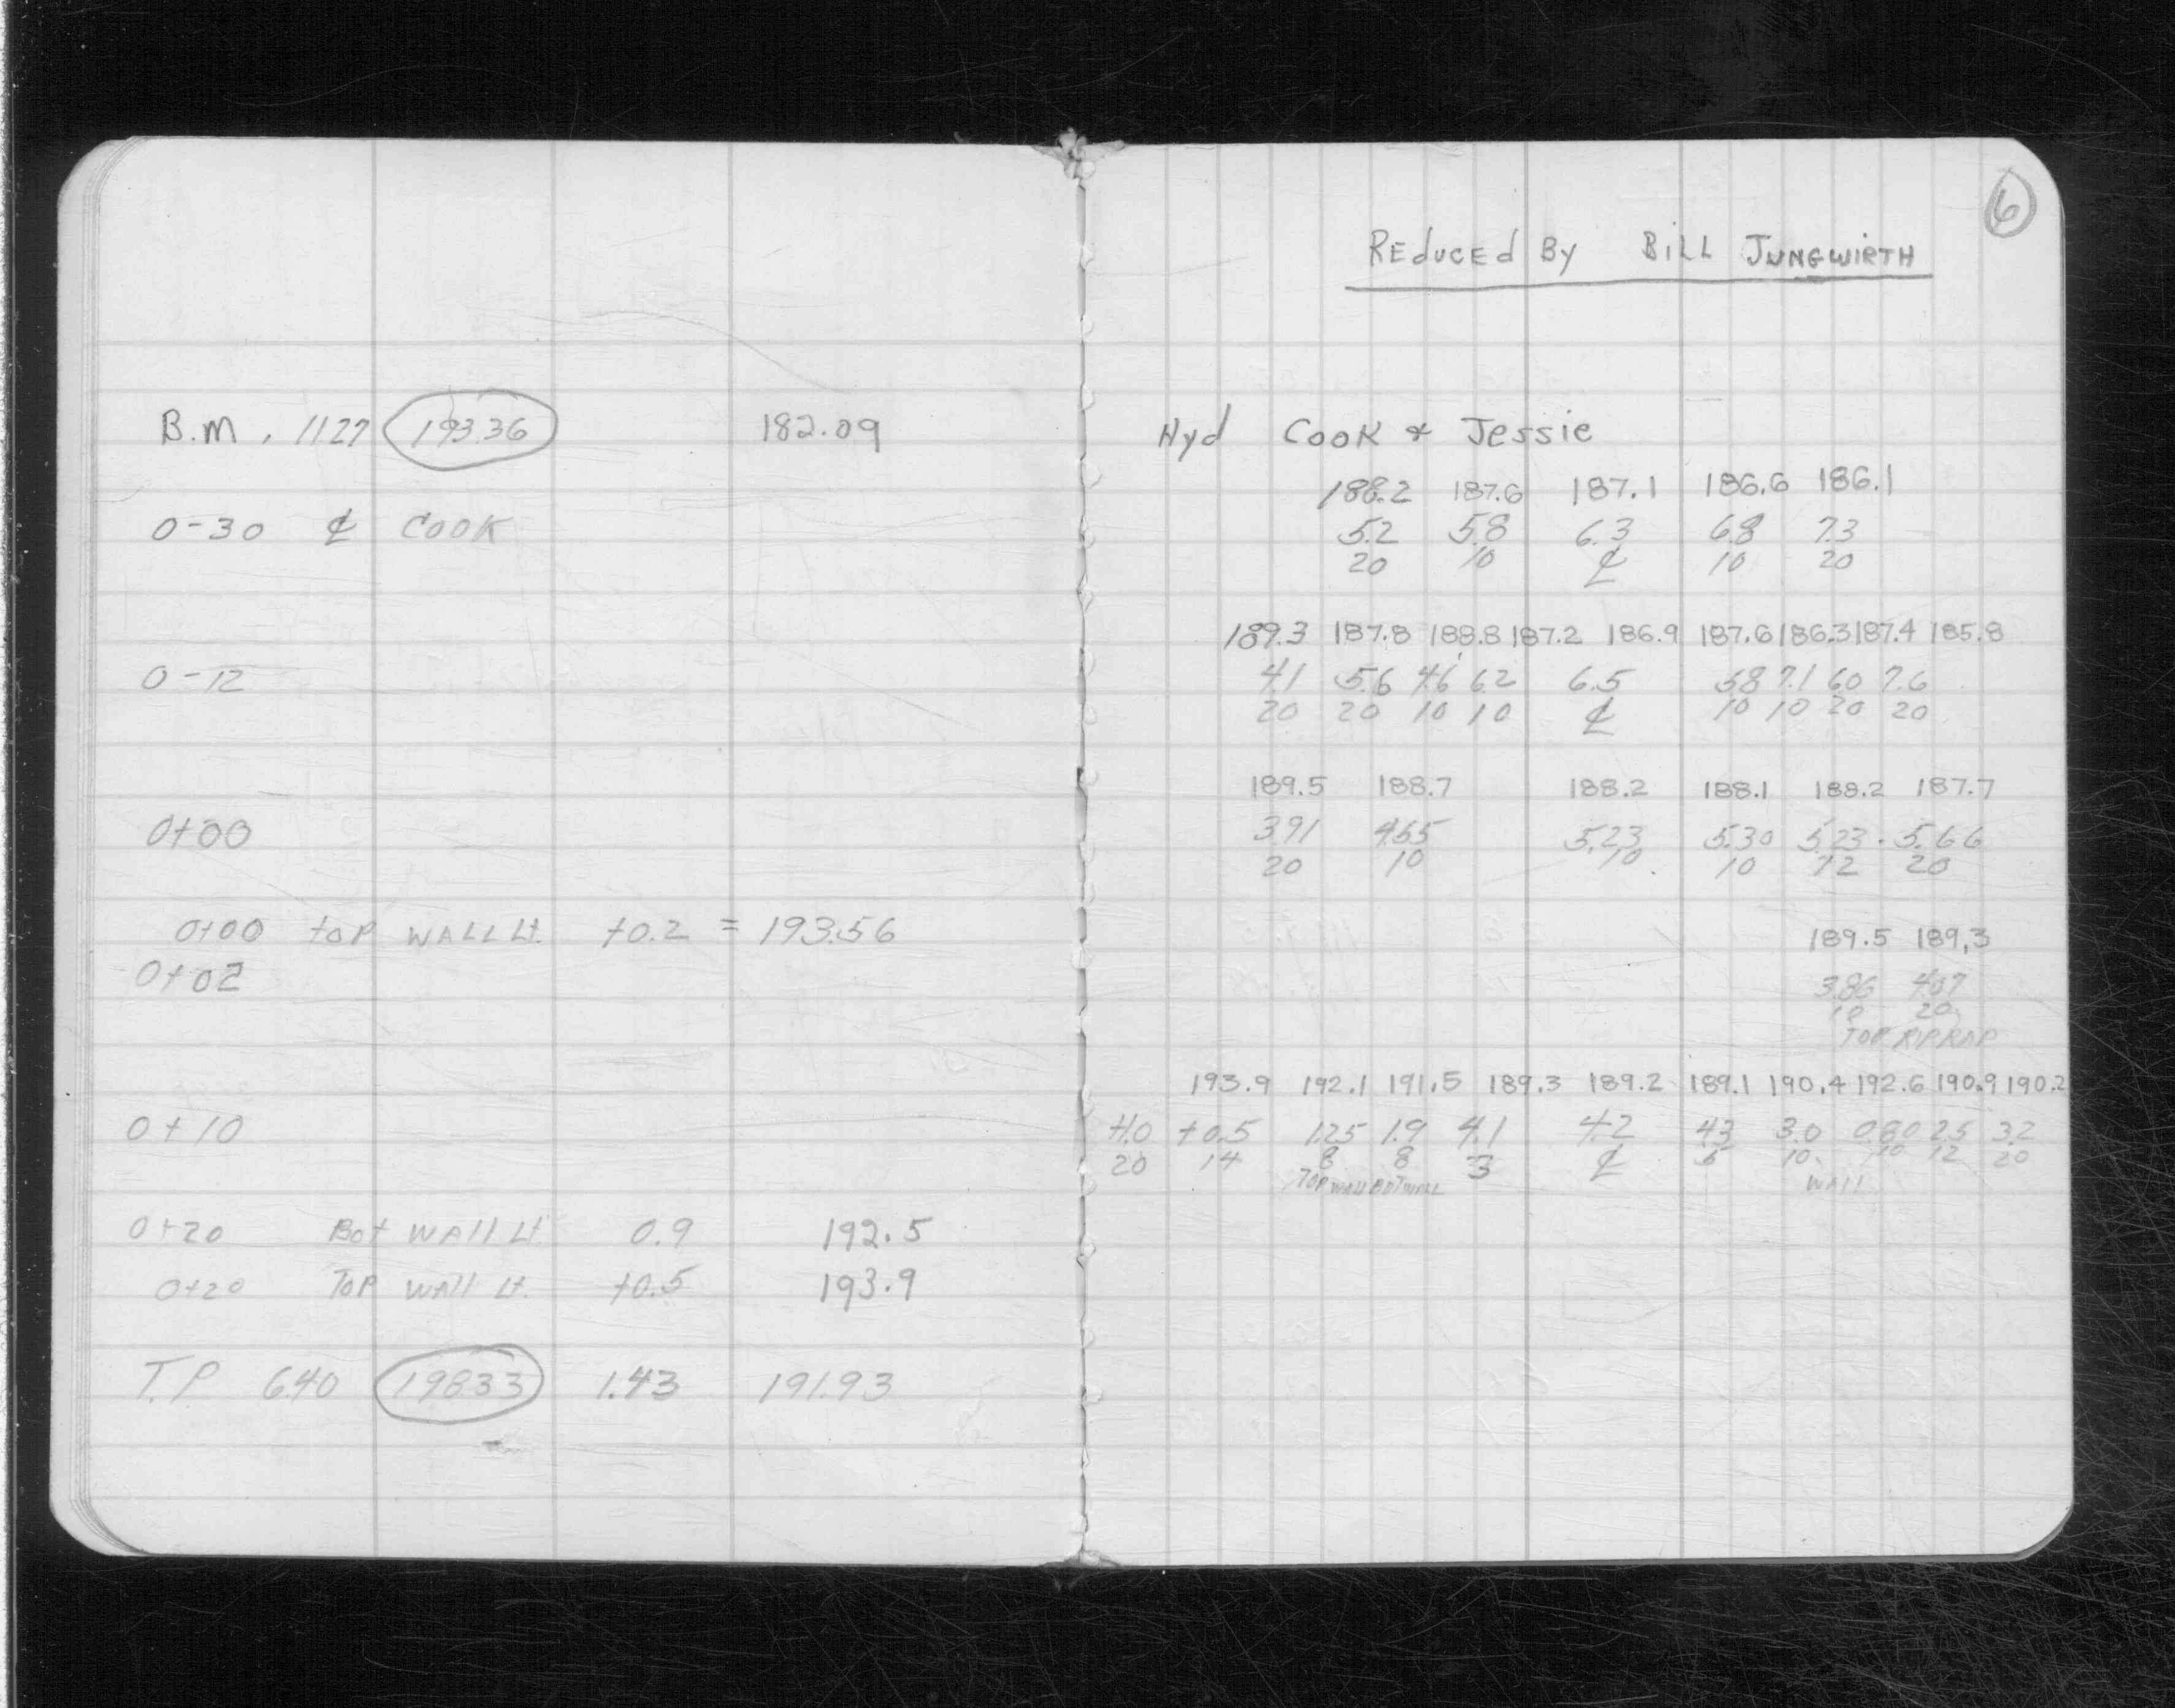 6
REducEd By BiLL JUNGWIRTH
B.M. 1127 193.36 182.09 Hyd Cook & Jessie
188.2 187.6 187.1 186.6 186.1
0-30 ℄ COOK 5.2 5.8 6.3 6.8 7.3
20 10 ℄ 10 20
189.3 187.8 188.8 187.2 186.9 187.6 186.3 187.4 185.8
0-12 4.1 5.6 4.6 6.2 6.5 5.8 7.1 6.0 7.6
20 20 10 10 ℄ 10 10 20 20
189.5 188.7 188.2 188.1 188.2 187.7
0+00 3.91 4.65 5.23 5.30 5.23 5.66
20 10 10 10 12 20
0+00 top WALL Lt. +0.2 = 193.56 189.5 189.3
0+02 3.86 4.07
20
TOP RIPRAP
193.9 192.1 191.5 189.3 189.2 189.1 190.4 192.6 190.9 190.2
0+10 +1.0 +0.5 1.25 1.9 4.1 4.2 4.3 3.0 0.80 2.5 3.2
20 14 8 8 3 ℄ 10 10 12 20
TOP WALL BOT WALL WALL
0+20 Bot WALL Lt 0.9 192.5
0+20 Top WALL Lt. +0.5 193.9
T.P 6.40 198.33 1.43 191.93